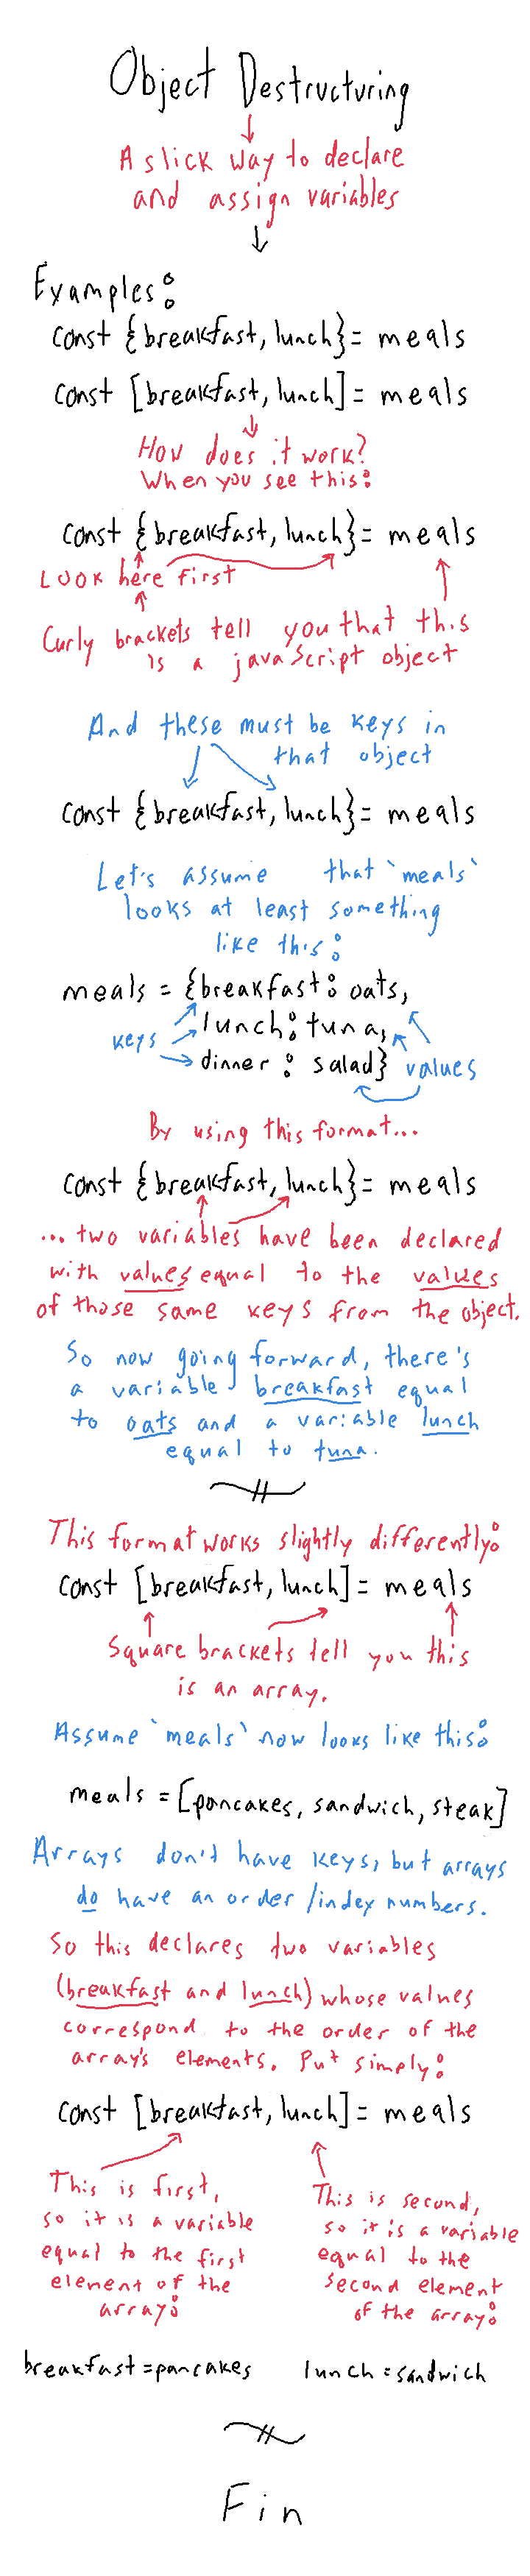 Object Destructuring
A slick way to declare
and assign variables
Examples:
const {breakfast, lunch}= meals
const [breakfast, lunch]= meals
How does it work?
When you see this:
const {breakfast, lunch}= meals
Look here first
Curly brackets tell you that this
is a javaScript object
And these must be keys in
that object
const {breakfast, lunch}= meals
Let's assume that `meals`
looks at least something
like this:
meals = {breakfast: oats,
lunch: tuna,
keys
dinner : salad} values
By using this format...
const {breakfast, lunch}= meals
... two variables have been declared
with values equal to the values
of those same keys from the object.
So now going forward, there's
a variable breakfast equal
to oats and a variable lunch
equal to tuna.
This format works slightly differently:
const [breakfast, lunch]= meals
Square brackets tell you this
is an array.
Assume `meals` now looks like this:
meals = [pancakes, sandwich, steak]
Arrays don't have keys, but arrays
do have an order/index numbers.
So this declares two variables
(breakfast and lunch) whose values
correspond to the order of the
array's elements. Put simply:
const [breakfast, lunch]= meals
This is first,
so it is a variable
equal to the first
element of the
array:
This is second,
so it is a variable
equal to the
second element
of the array:
breakfast = pancakes lunch = sandwich
Fin